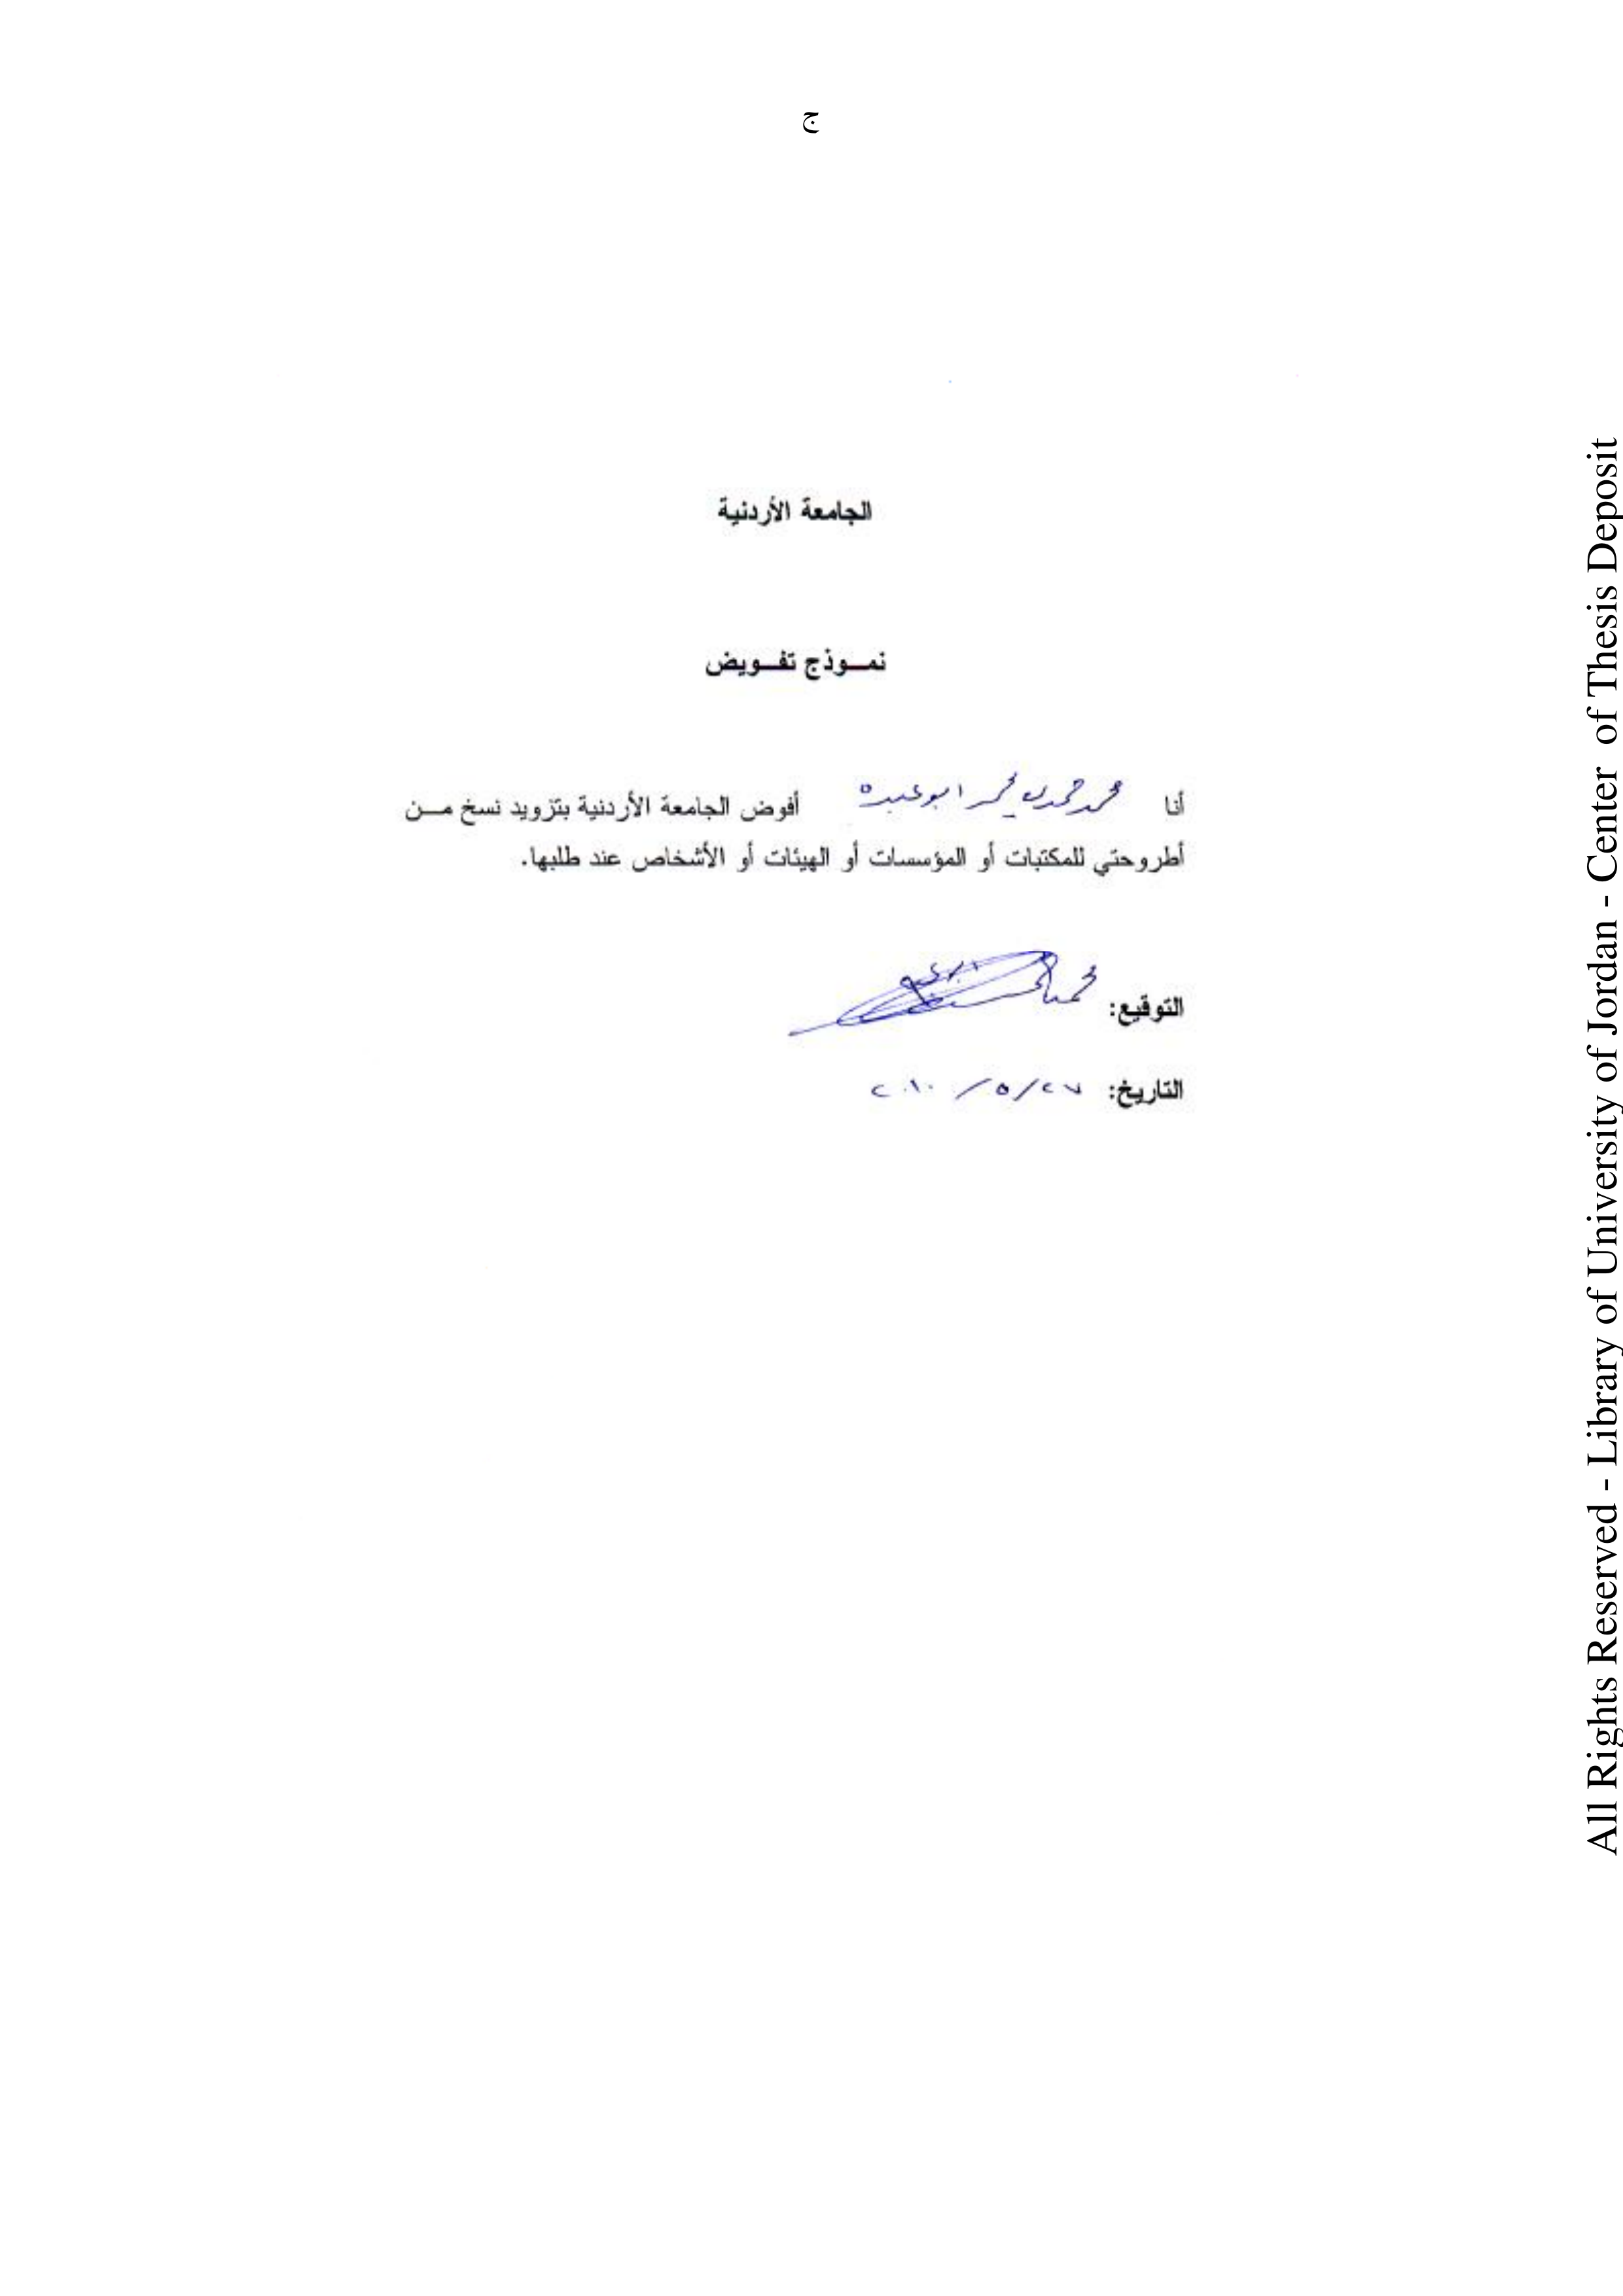 ج
الجامعة الأردنية
نمـــوذج تفـــويض
أنا محمد حمدي محمد ابو عبده أفوض الجامعة الأردنية بتزويد نسخ مـــن
أطروحتي للمكتبات أو المؤسسات أو الهيئات أو الأشخاص عند طلبها.
التوقيع:
التاريخ: ٢٧/٥/٢٠١٠
All Rights Reserved - Library of University of Jordan - Center of Thesis Deposit